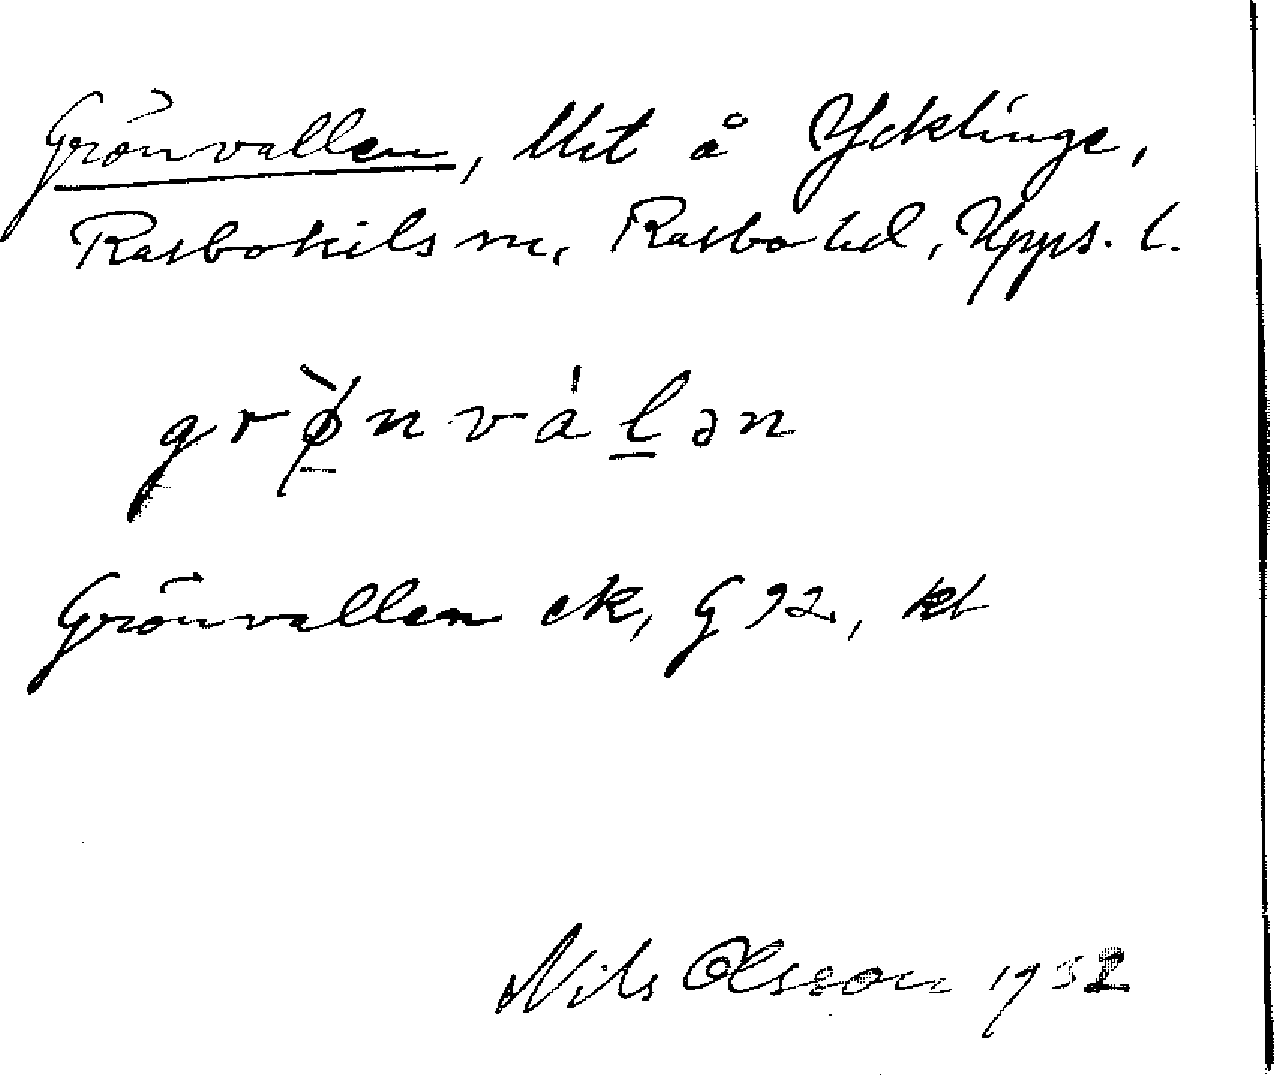 Grönvallen, llit å Ycklinge,
Rasbokils sn, Rasbo hd, Upps. l.
grø̀nvàḻən
Grönvallen ek, G 92, kt
Nils Olsson 1932